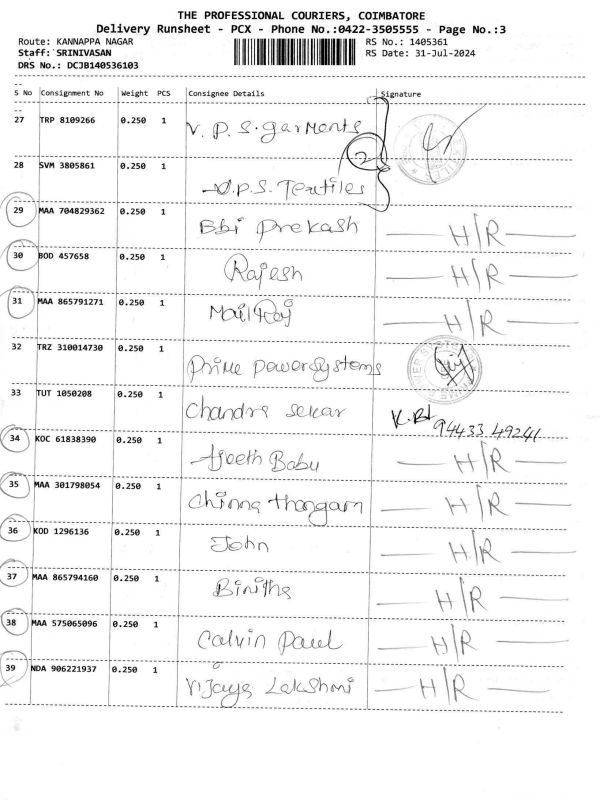 THE PROFESSIONAL COURIERS, COIMBATORE
Delivery Runsheet - PCX - Phone No.:0422-3505555 - Page No.:3
Route: KANNAPPA NAGAR RS No.: 1405361
Staff: SRINIVASAN RS Date: 31-Jul-2024
DRS No.: DCJB140536103
S No Consignment No Weight PCS Consignee Details Signature
27 TRP 8109266 0.250 1 V.P.S. garments
2
28 SVM 3805861 0.250 1 V.P.S. Textiles
29 MAA 704829362 0.250 1 Bbi Prekash H/R
30 BOD 457658 0.250 1 Rajesh H/R
31 MAA 865791271 0.250 1 H/R
32 TRZ 310014730 0.250 1 Prime Powersystems
33 TUT 1050208 0.250 1 Chandra sekar 94433 49241
34 KOC 61838390 0.250 1 Ajeeth Babu H/R
35 MAA 301798054 0.250 1 Chinna thangam H/R
36 KOD 1296136 0.250 1 John H/R
37 MAA 865794160 0.250 1 Binitha H/R
38 MAA 575065096 0.250 1 Calvin Paul H/R
39 NDA 906221937 0.250 1 Vijaya Lakshmi H/R